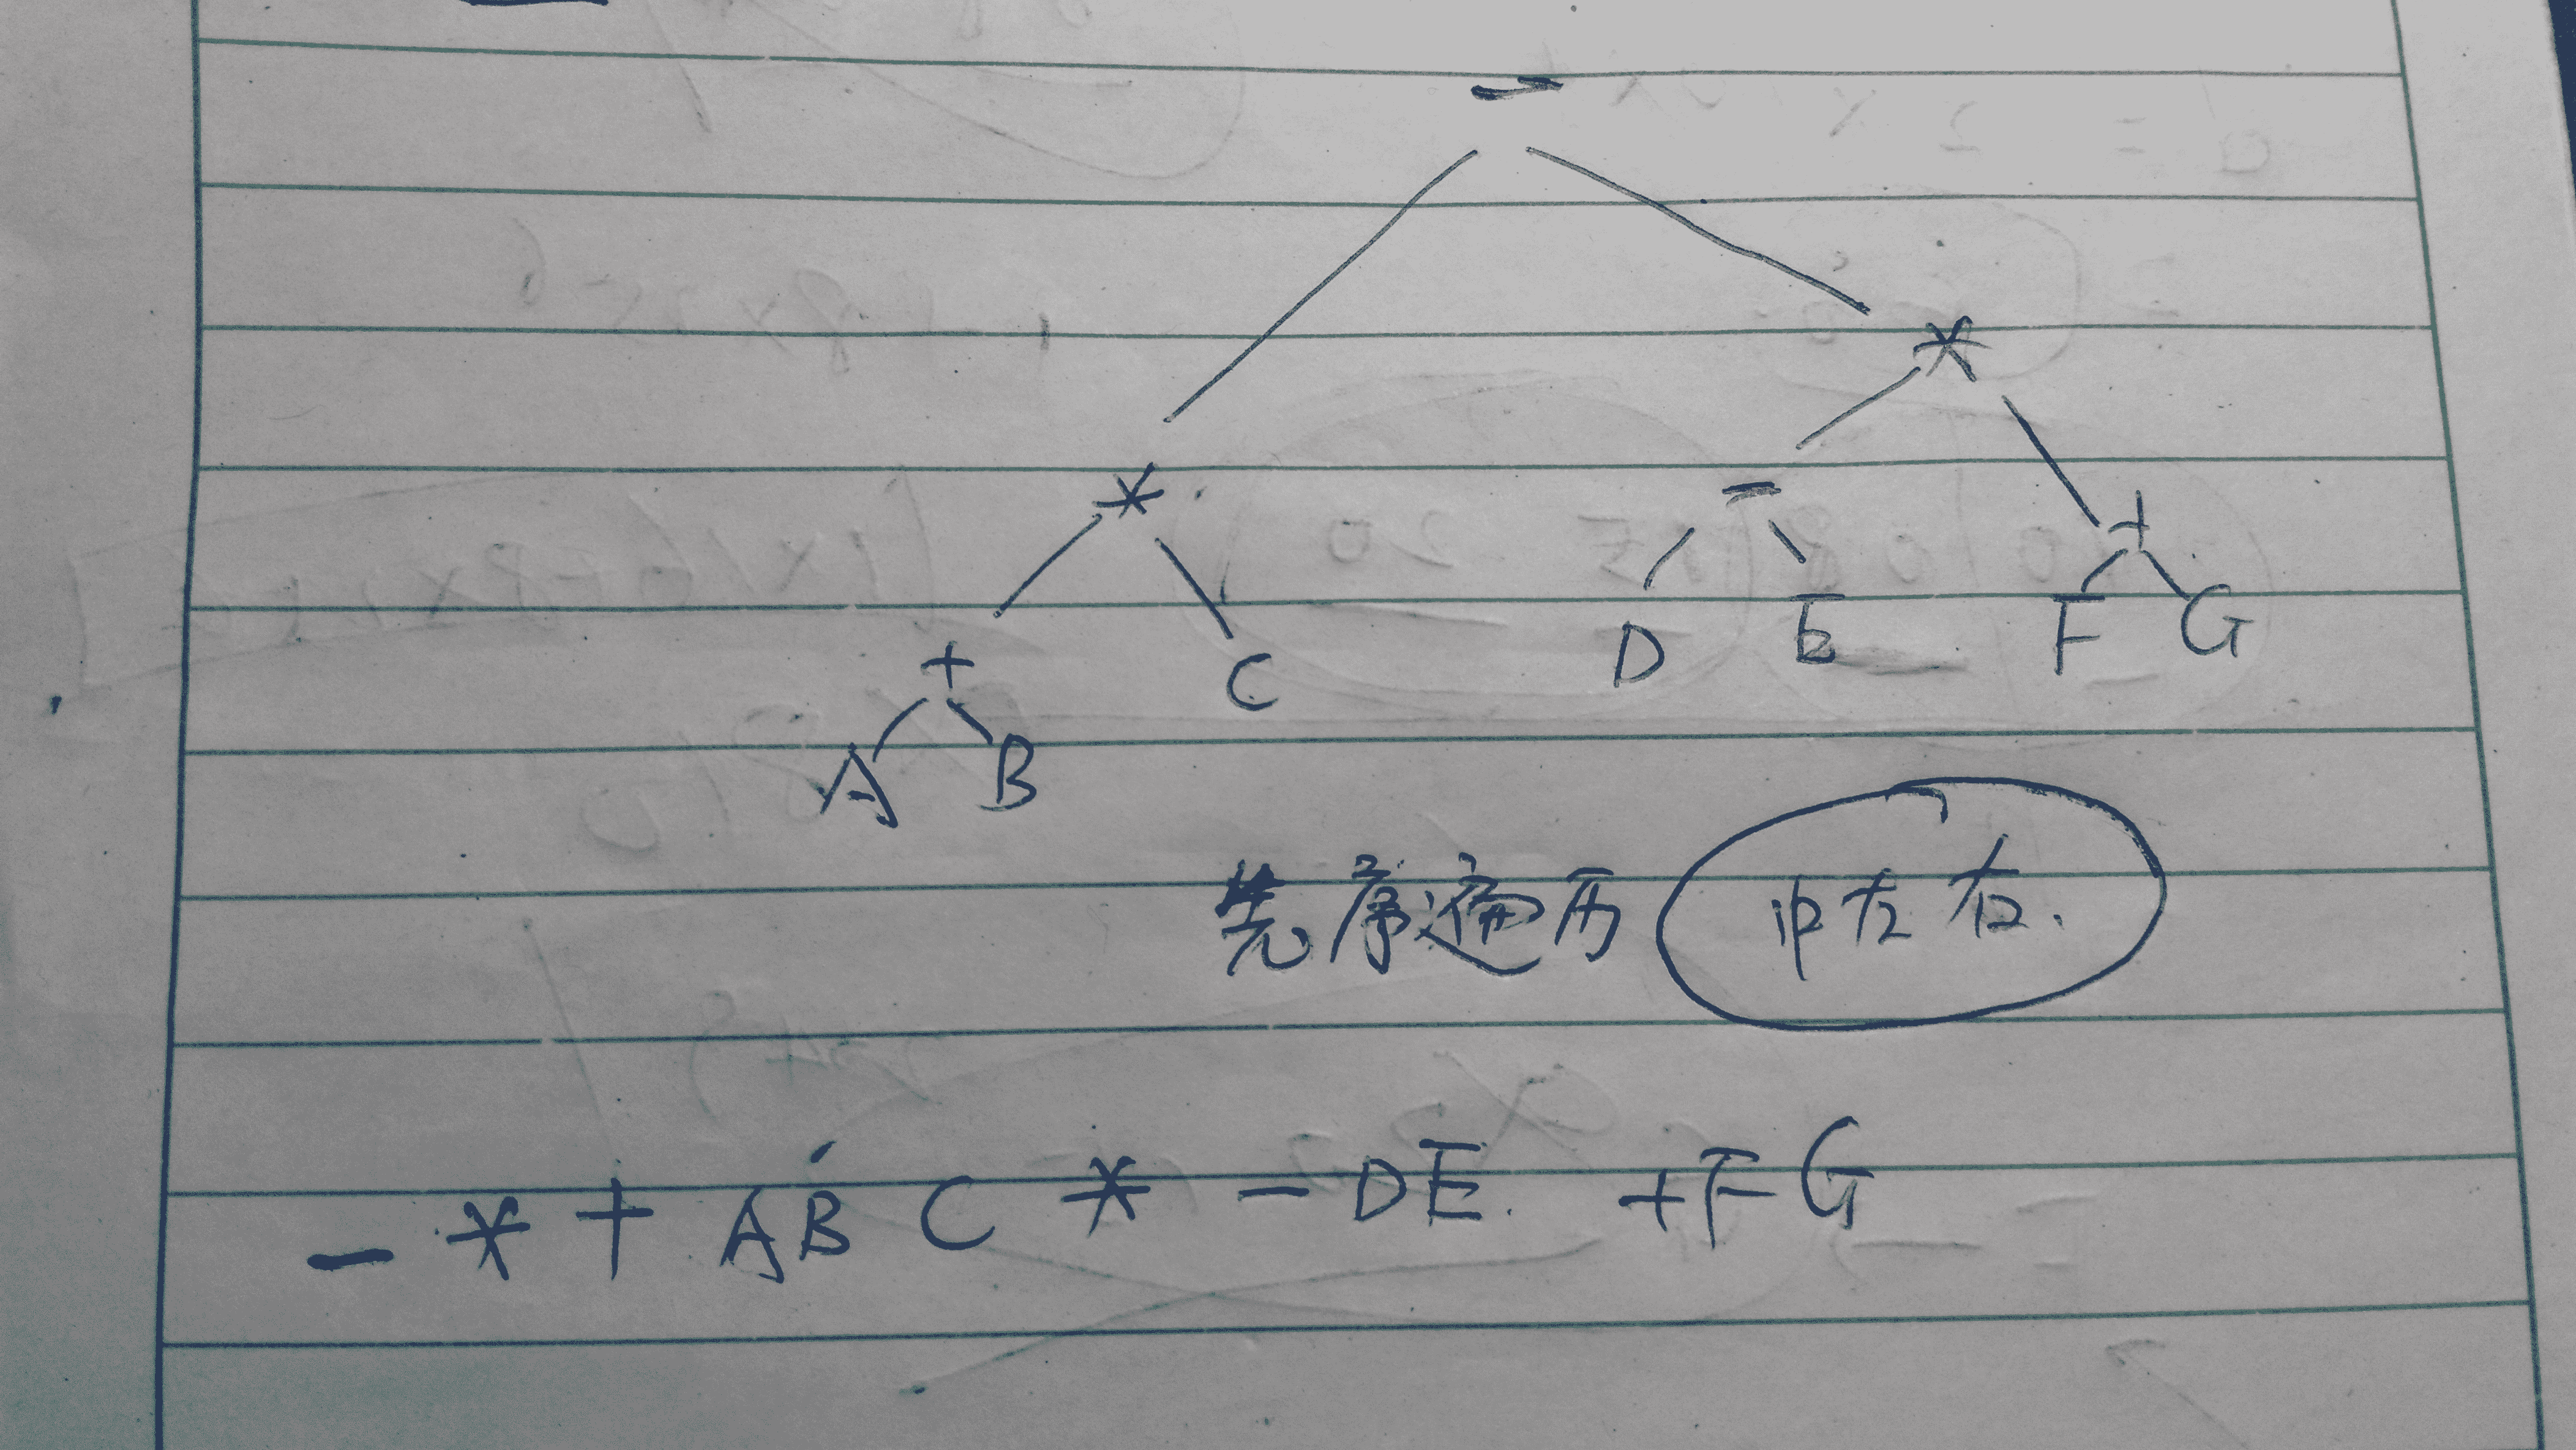 -
*
* - +
+ C D E F G
A B
先序遍历 中左右.
- * + A B C * - D E. + F G